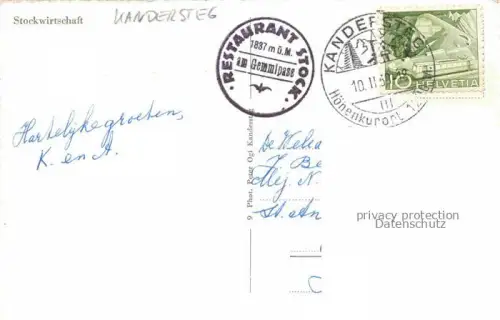 KANDERSTEG
Stockwirtschaft
RESTAURANT STOCK
1837 m ü.M.
am Gemmipass
KANDERSTEG
10. II
III
Höhenkurort
10
HELVETIA
Hartelijke groeten,
K. en A.
9 Phot. Peter Ogi Kandersteg
De
J. Be
Mej. N.
St. An
privacy protection
Datenschutz